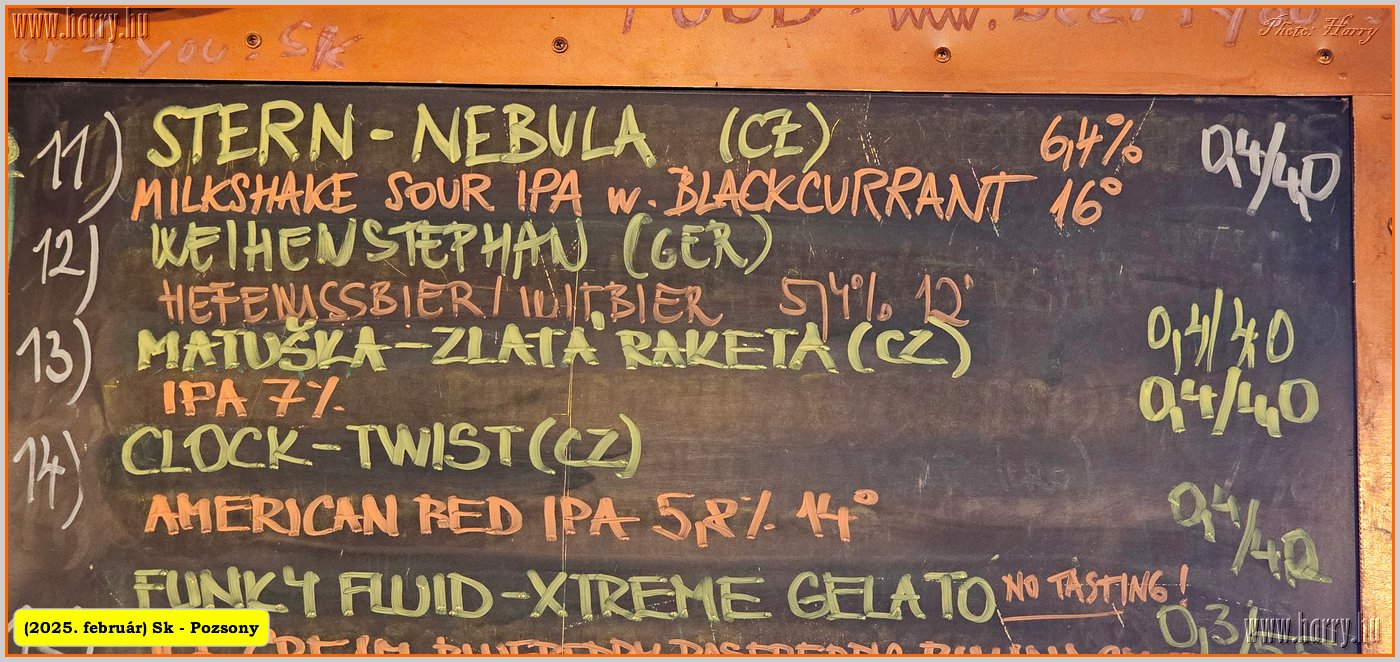 www.horry.hu
Photo: Horry
FOOD - www.beer4you.s
er4you.sk
11) STERN - NEBULA (CZ) 6,4% 0,4/4,0
MILKSHAKE SOUR IPA w. BLACKCURRANT 16°
12) WEIHENSTEPHAN (GER)
HEFEWSSBIER / WITBIER 5,4% 12° 0,4/4,0
13) MATUŠKA - ZLATÁ RAKETA (CZ)
IPA 7% 0,4/4,0
14) CLOCK - TWIST (CZ)
AMERICAN RED IPA 5,8% 14° 0,4/4,0
FUNKY FLUID - XTREME GELATO NO TASTING! 0,3/
BLUEBERRY RASPBERRY BANANA
(2025. február) Sk - Pozsony
www.horry.hu